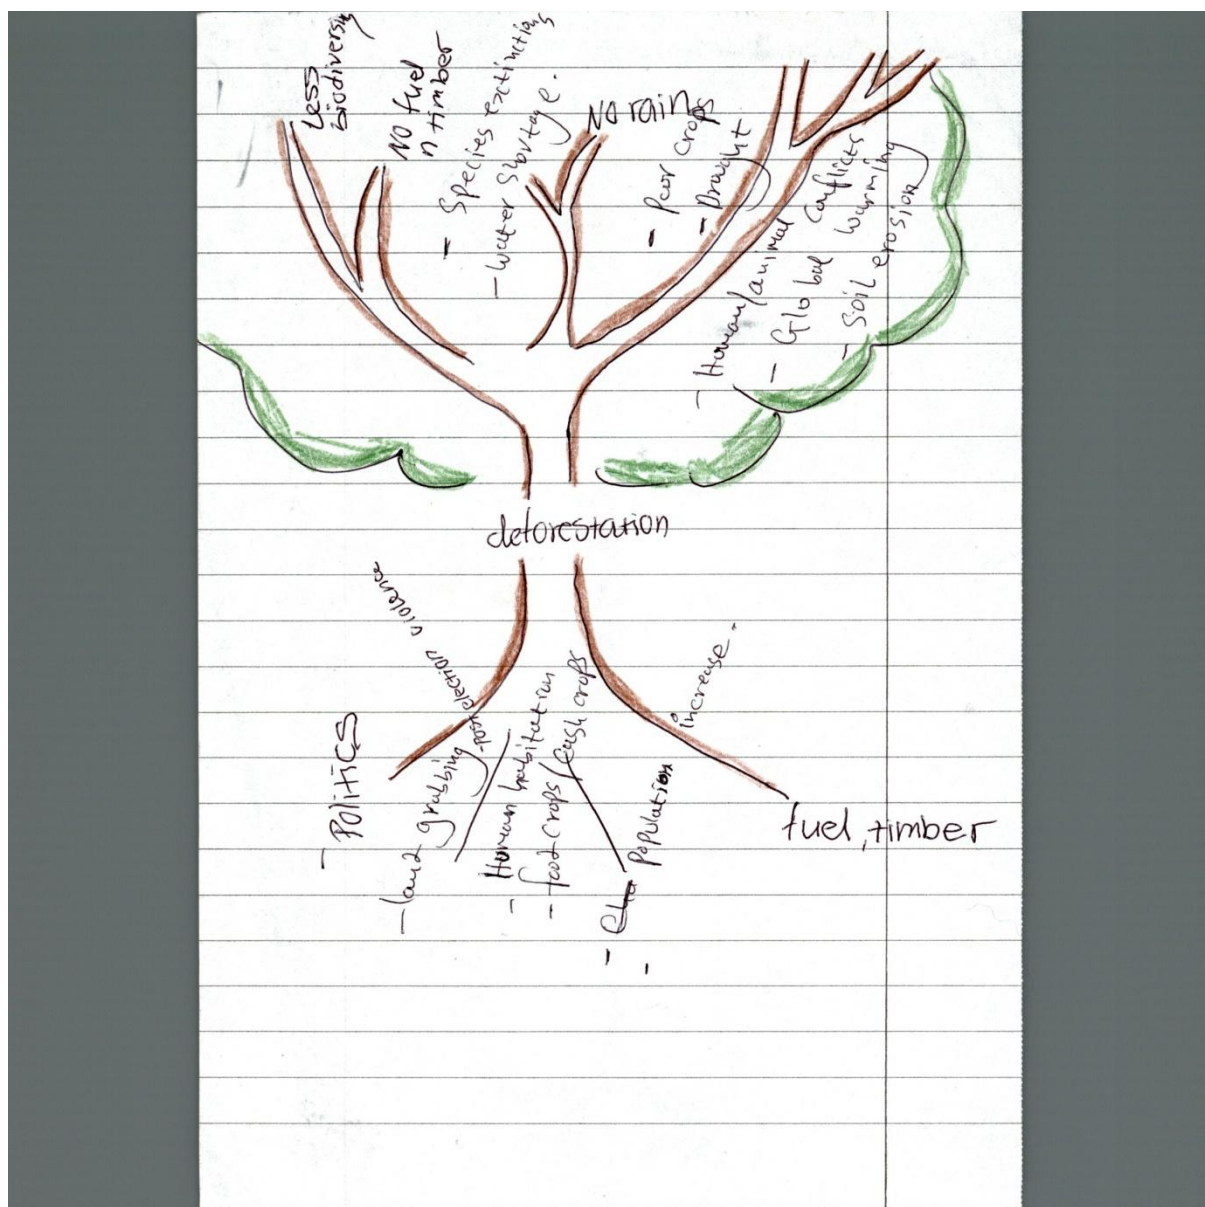 Less
biodiversity
No fuel
n timber
- Species extinctions
- Water shortage.
No rain
- Poor crops
- Drought
- Human/animal conflicts
- Global warming
- Soil erosion
deforestation
- Politics
- land grabbing
- post election violence
- Human habitation
- food crops / Cash crops
- Population increase -
fuel, timber